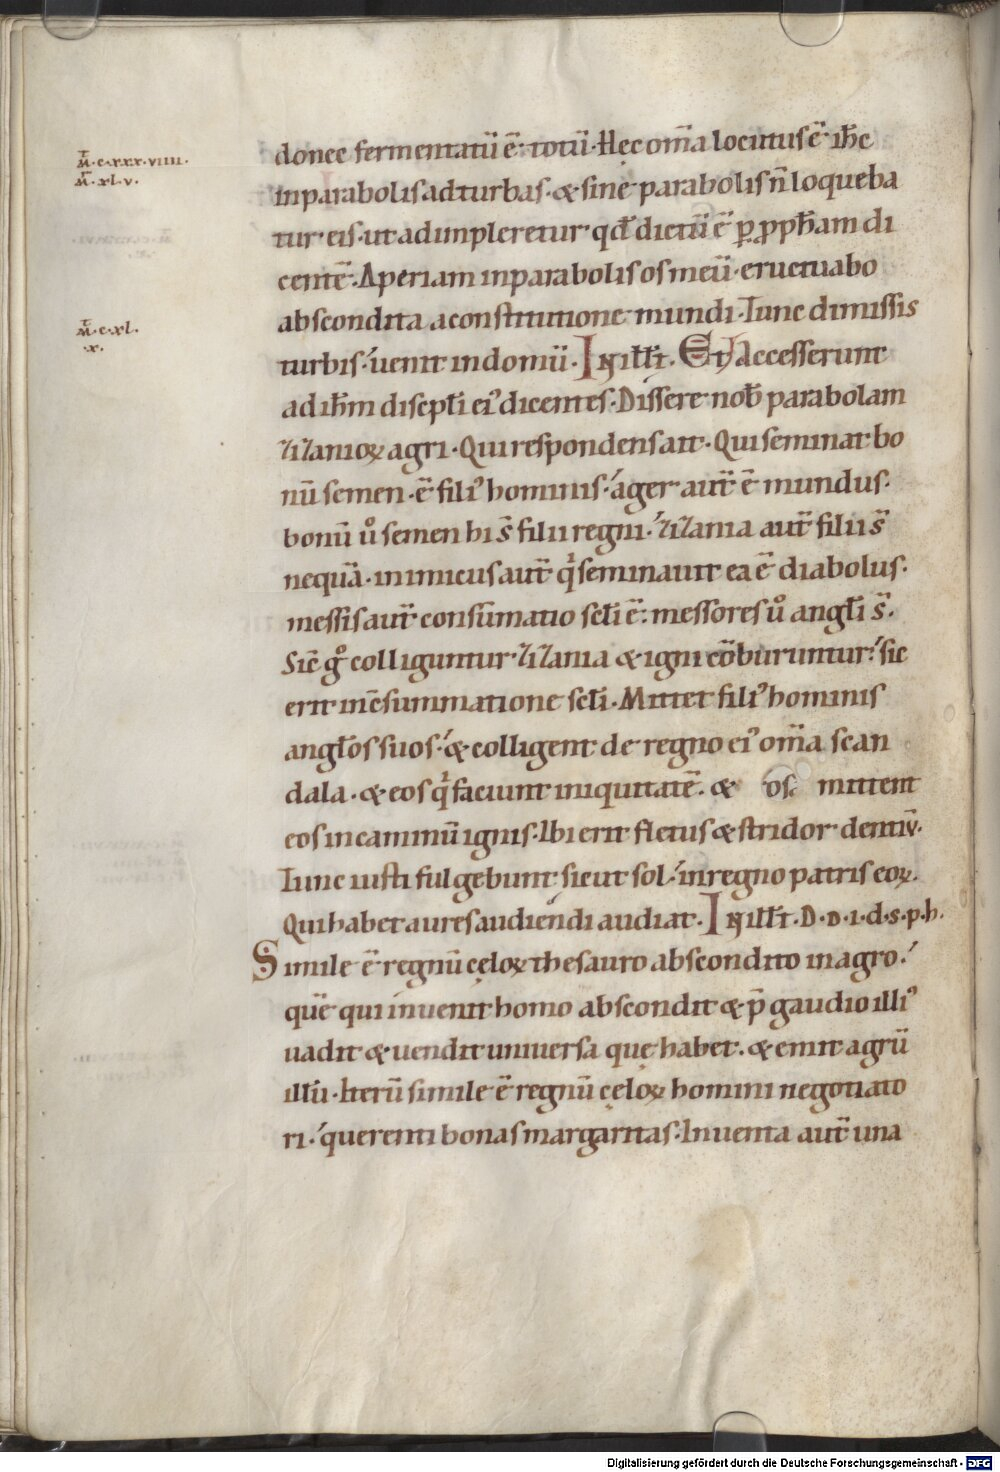 M̄·c·xxx·viiii·
M̄·xl·v·
donec fermentatū ē· totū· Hęc om̄a locutus ē ih̄c
in parabolis ad turbas· & sine parabolis n̄ loqueba
tur eis· ut adimpleretur qd̄ dictū ē ꝑ ꝓph̄am di
centē· Aperiam in parabolis os meū· eructuabo
M̄·c·xl·
·x·
abscondita a constitutione mundi· Tunc dimissis
turbis· uenit in domū· In ill̄t· Et Accesserunt
ad ih̄m discipl̄i ei᾽ dicentes· Dissere nob̄ parabolam
zizanioꝝ agri· Qui respondens ait· Qui seminat bo
nū semen· ē fili᾽ hominis· ager aut̄ ē mundus·
bonū ů semen hi s̄ filii regni· zizania aut̄ filii s̄
nequā· inimicus aut̄ qͥ seminauit ea ē diabolus·
messis aut̄ consūmatio scl̄i ē· messores ů angl̄i s̄·
Sic̄ gͦ colliguntur zizania & igni cōburuntur· sic
erit in c̄summatione scl̄i· Mittet fili᾽ hominis
angl̄os suos· & colligent de regno ei᾽ om̄a scan
dala· & eos qͥ faciunt iniquitatē· & os mittent
eos in caminū ignis· Ibi erit fletus & stridor dentiū·
Tunc iusti fulgebunt sicut sol· in regno patris eoꝝ·
Qui habet aures audiendi audiat· In ill̄t· D·n·i·d·s·p·h·
Simile ē regnū cęloꝝ thesauro abscondito in agro·
quē qui inuenit homo abscondit & p̄ gaudio illi᾽
uadit & uendit uniuersa quę habet· & emit agrū
illū· Iterū simile ē regnū cęloꝝ homini negotiato
ri· querenti bonas margaritas· Inuenta aut̄ una
Digitalisierung gefördert durch die Deutsche Forschungsgemeinschaft - DFG